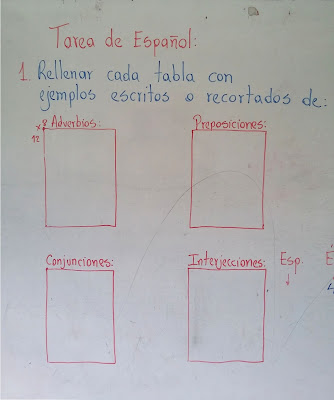 Tarea de Español:
1. Rellenar cada tabla con
ejemplos escritos o recortados de:
Adverbios: Preposiciones:
12
Conjunciones: Interjecciones: Esp.